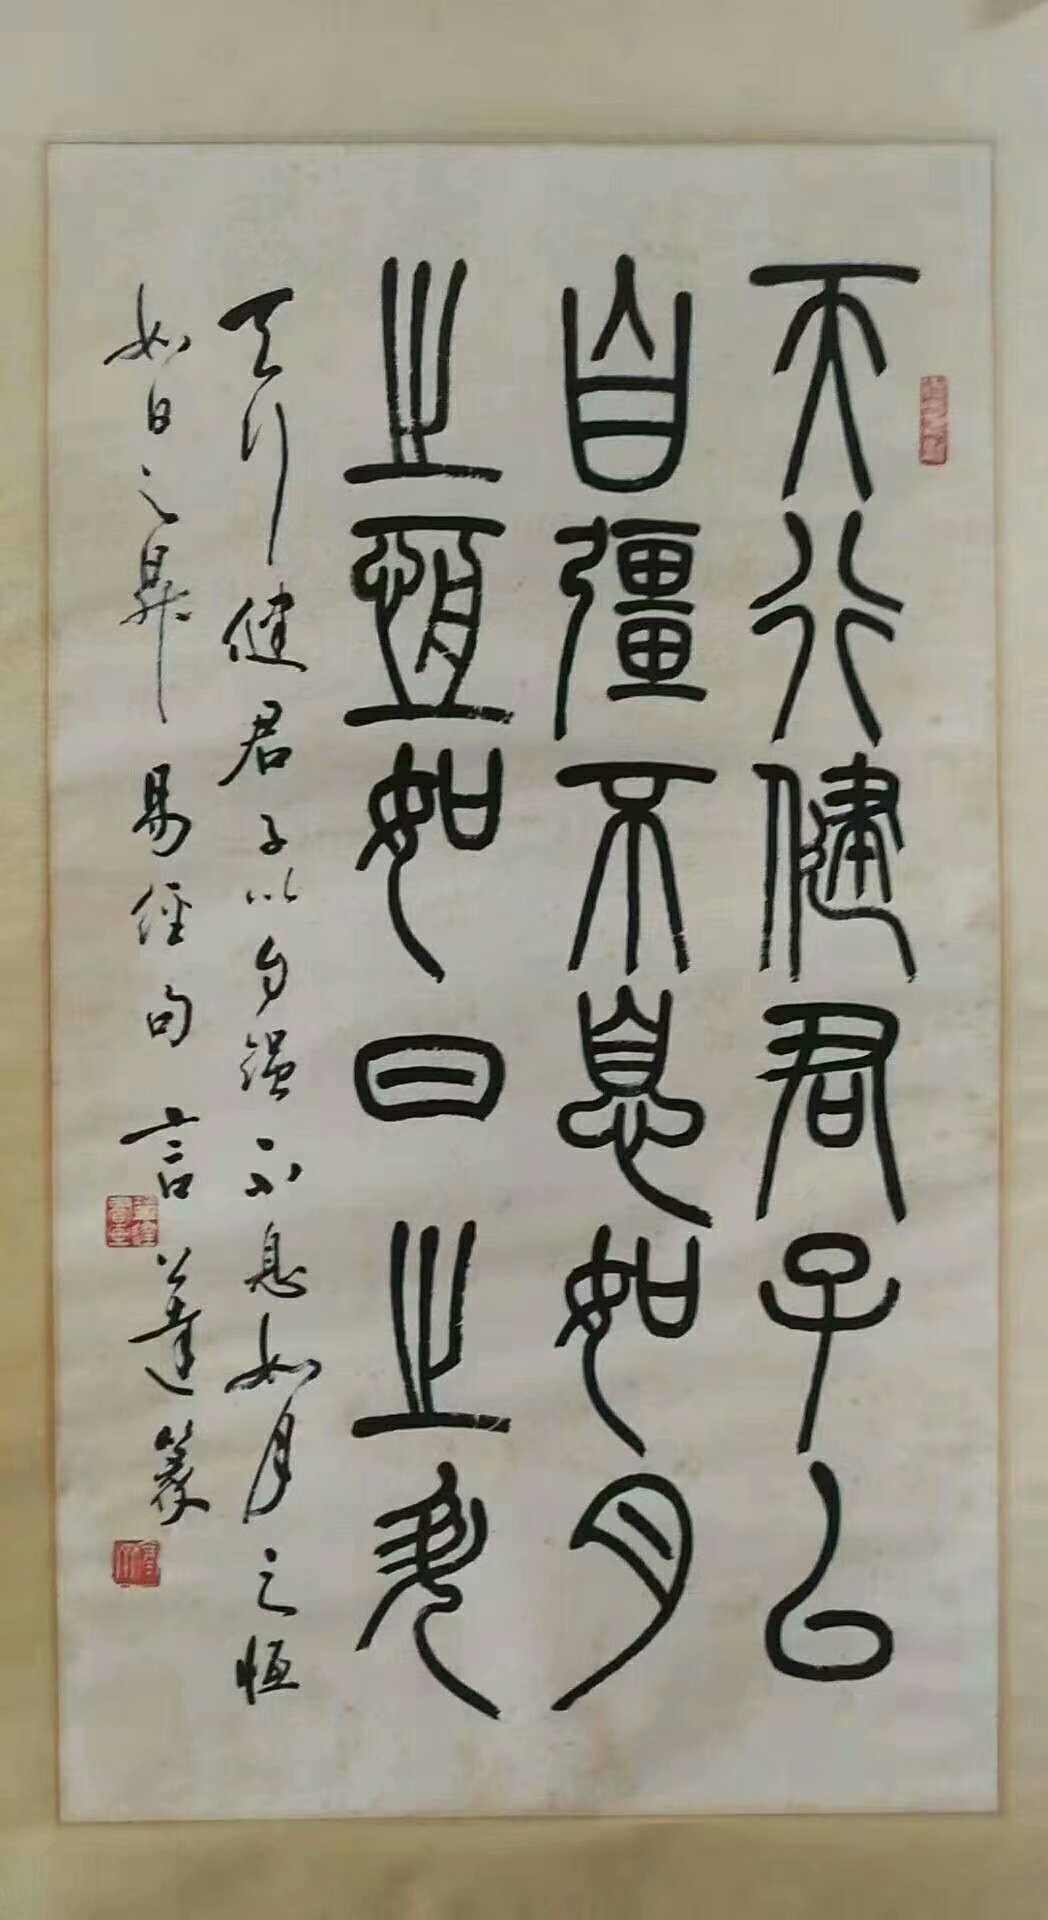 天行健君子以
自彊不息如月
之恒如日之升
天行健君子以自强不息如月之恒
如日之昇易經句言公達篆